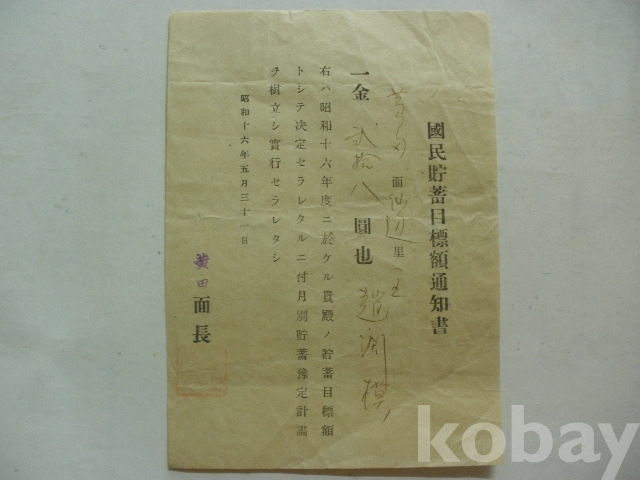 國民貯蓄目標額通知書
黄田面仙邊里
趙淵模
一金 貳拾八 圓也
右ハ昭和十六年度ニ於ケル貴殿ノ貯蓄目標額
トシテ決定セラレタルニ付月別貯蓄豫定計畫
チ樹立シ實行セラレタシ
昭和十六年五月三十一日
黄田面長
kobay